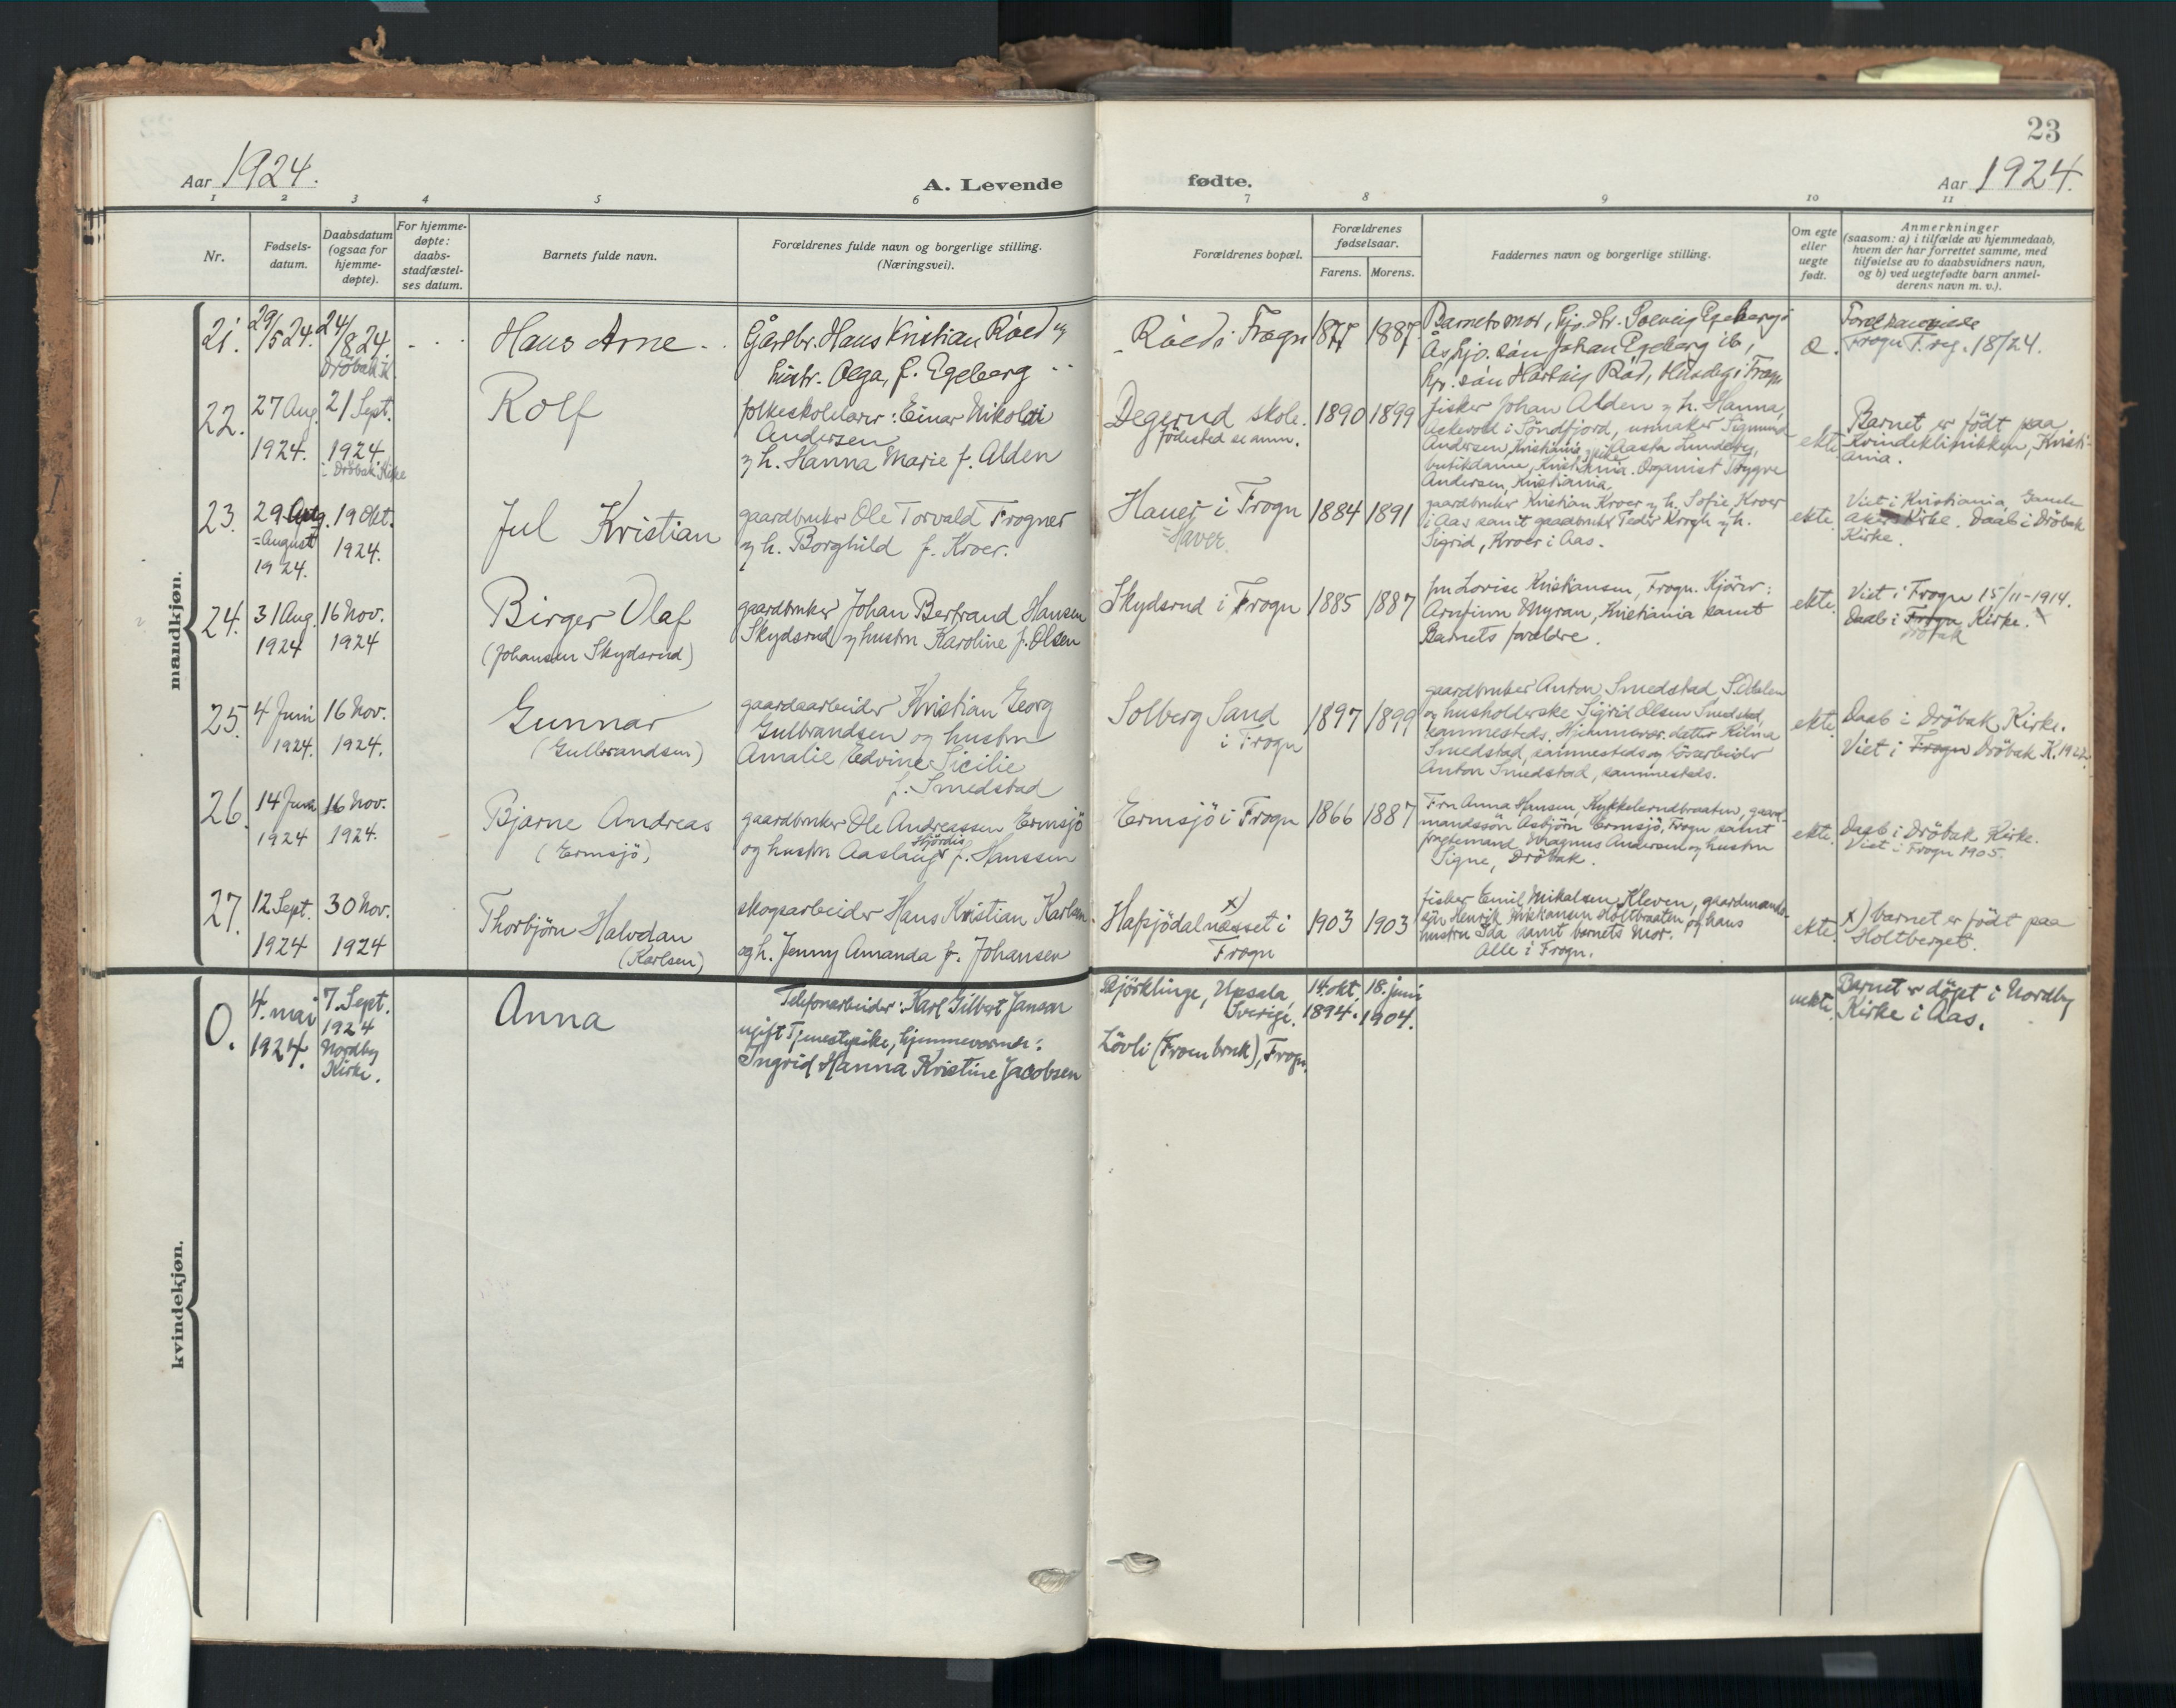 23
Aar 1924.
A. Levende
fødte.
Aar 1924.
1 2 3 4 5 6 7 8 9 10 11
Nr.
Fødsels-
datum.
Daabsdatum
(ogsaa for
hjemme-
døpte).
For hjemme-
døpte:
daabs-
stadfæstel-
ses datum.
Barnets fulde navn.
Forældrenes fulde navn og borgerlige stilling.
(Næringsvei).
Forældrenes bopæl.
Forældrenes
fødselsaar.
Farens. Morens.
Faddernes navn og borgerlige stilling.
Om egte
eller
uegte
født.
Anmerkninger
(saasom: a) i tilfælde av hjemmedaab,
hvem der har forrettet samme, med
tilføielse av to daabsvidners navn,
og b) ved uegtefødte barn anmel-
derens navn m. v.).
mandkjøn.
21.
29/5 24.
24/8 24.
Dröbak K.
Hans Arne
Gårdbr. Hans Kristian Röed og
hustr. Olga, f. Egeberg
Röed i Frogn
1877
1887.
Barnets mor, hjv. dtr. Solveig Egeberg i
Ås, hjv. søn Johan Egeberg ib,
hjv. søn Hartvig Röd, Husdeg i Frogn
Frogn F. reg. 18/24.
22.
27 Aug.
1924.
21 Sept.
1924
i Dröbak Kirke
Rolf
folkeskolelærer: Einar Nikolai
Andersen
og h. Hanna Marie f. Alden
Degerud skole.
födested se anm.
1890
1899
fisker Johan Alden og h. Hanna,
Askevold i Söndfjord, urmaker Sigmund
Andersen, Kristiania, Aasta Lundeby,
butikdame, Kristiania. Organist Trygve
Andersen, Kristiania
ekte
Barnet er födt paa
Kvindeklinikken, Kristi-
ania.
23.
29 Aug.
=August
1924.
19 Okt.
1924.
Jul Kristian
gaardbruker Ole Torvald Frogner
og h. Borghild f. Kroer.
Hauer i Frogn
=Haver.
1884
1891
gaardbruker Kristian Kroer og h. Sofie, Kroer
i Aas samt gaardbruker Peder Krogh og h.
Sigrid, Kroer i Aas.
ekte
Viet i Kristiania, Gamle
Akers Kirke. Daab i Dröbak
Kirke.
24.
31 Aug.
1924
16 Nov.
1924
Birger Olaf
(Johansen Skydsrud)
gaardbruker Johan Bertrand Hansen
Skydsrud og hustru Karoline f. Olsen
Skydsrud i Frogn
1885
1887
fru Lovise Kristiansen, Frogn. Kjörer:
Arnfinn Myran, Kristiania samt
Barnets forældre.
ekte.
Viet i Frogn 15/11-1914.
Daab i Frogn Kirke.
Dröbak
25.
4 Juni
1924.
16 Nov.
1924.
Gunnar
(Gulbrandsen)
gaardsarbeider Kristian Georg
Gulbrandsen og hustru
Amalie Edvine Sicilie
f. Smedstad
Solberg Sand
i Frogn
1897
1899
gaardbruker Anton Smedstad,
og husholderske Sigrid Olsen Smedstad,
sammesteds. Hjemmevær. datter
Smedstad, sammesteds og lösarbeider
Anton Smedstad, sammesteds.
ekte
Daab i Dröbak Kirke.
Viet i Frogn Dröbak K. 1922.
26.
14 Juni
1924
16 Nov.
1924.
Bjarne Andreas
(Ermsjö)
gaardbruker Ole Andreassen Ermsjö
Hjördis
og hustru Aaslaug f. Hanssen
Ermsjö i Frogn
1866
1887
Fru Anna Hansen, Kykkelsrudbraaten, gaard-
mandssön Asbjörn Ermsjö, Frogn samt
fragtemand Magnus Andersen og hustru
Signe, Dröbak.
ekte.
Daab i Dröbak Kirke.
Viet i Frogn 1905.
27.
12 Sept.
1924
30 Nov.
1924
Thorbjörn Halvdan
(Karlsen)
skogsarbeider Hans Kristian Karlsen
og h. Jenny Amanda f. Johansen
x)
Hafsjödalnæsset i
Frogn
1903
1903
fisker Emil Mikalsen Kleven, gaardmands-
sön Henrik Mikkansen Holtbraaten og hans
hustru Ida samt barnets Mor.
Alle i Frogn.
ekte.
x) barnet er födt paa
Holtberget.
kvindekjøn.
0.
4. mai
1924.
7. Sept.
1924
Nordby
Kirke.
Anna
Telefonarbeider: Karl Gilbert Janson
ugift Tjenestepike, hjemmeværende:
Ingrid Hanna Kristine Jacobsen
Björklinge, Upsala,
Sverige.
Lövli (Froen bruk), Frogn.
14. okt.
1894.
18. juni
1904.
uekte.
Barnet er döpt i Nordby
Kirke i Aas.